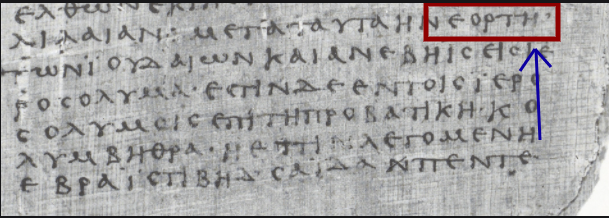 ΕΛΘΩΝΕΚ
ΛΙΛΑΙΑΝ: ΜΕΤΑΤΑΥΤΑΗΝΕΟΡΤΗ·
ΤΩΝΪΟΥΔΑΙΩΝΚΑΙΑΝΕΒΗΙϹΕΙϹΪΕ
ΡΟϹΟΛΥΜΑ·ΕϹΤΙΝΔΕΕΝΤΟΙϹΪΕΡΟ
ϹΟΛΥΜΟΙϹΕΠΙΤΗΠΡΟΒΑΤΙΚΗ·ΚΟ
ΛΥΜΒΗΘΡΑ·ΗΕΠΙΛΕΓΟΜΕΝΗ
ΕΒΡΑΪϹΤΙΒΗΔ·ϹΑΪΔΑΝΠΕΝΤΕ